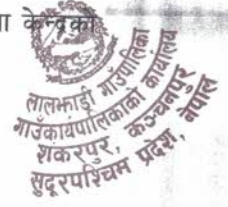 ा केन्द्रको
लालझाडी गाउँपालिका
गाउँकार्यपालिकाको कार्यालय
शंकरपुर, कञ्चनपुर
सुदूरपश्चिम प्रदेश, नेपाल